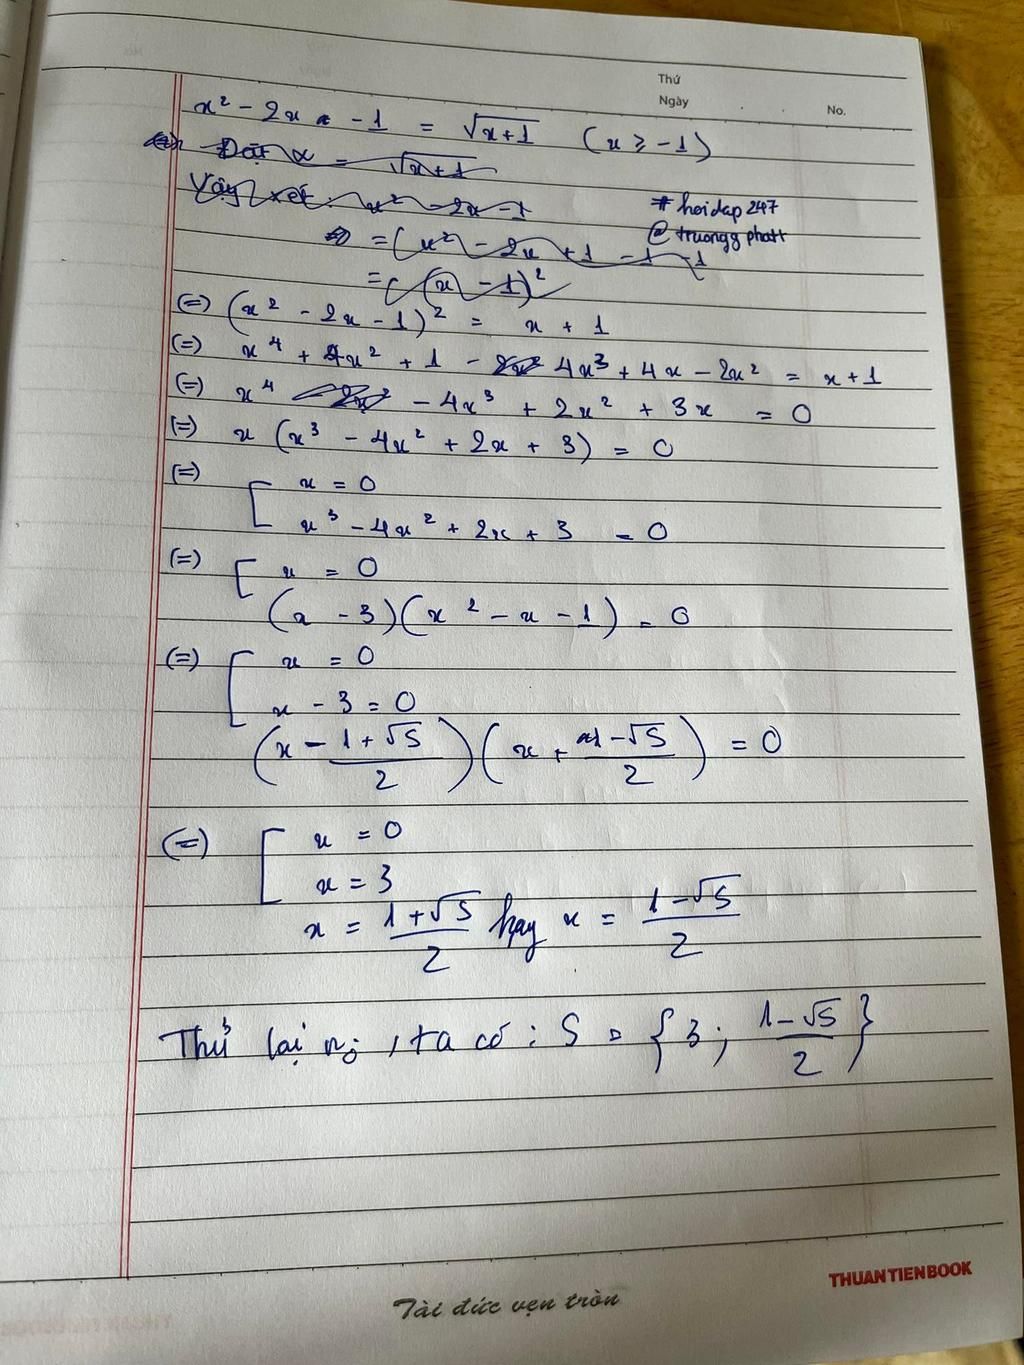 Thứ
Ngày . . No.
x² - 2x - 1 = √(x+1) (x ≥ -1)
Đặt x = √(x+1)
Vậy xét: x² - 2x - 1
= (x² - 2x + 1 - 1 - 1
= (x - 1)²
#hoidap247
@truongg phatt
(=) (x² - 2x - 1)² = x + 1
(=) x⁴ + 4x² + 1 - 4x³ + 4x - 2x² = x+1
(=) x⁴ - 4x³ + 2x² + 3x = 0
(=) x (x³ - 4x² + 2x + 3) = 0
(=) [ x = 0
x³ - 4x² + 2x + 3 = 0
(=) [ x = 0
(x - 3)(x² - x - 1) = 0
(=) [ x = 0
x - 3 = 0
(x - (1+√5)/2) (x + (-1-√5)/2) = 0
(=) [ x = 0
x = 3
x = (1+√5)/2 hay x = (1-√5)/2
Thử lại n₀, ta có: S = {3; (1-√5)/2}
THUANTIENBOOK
Tài đức vẹn tròn